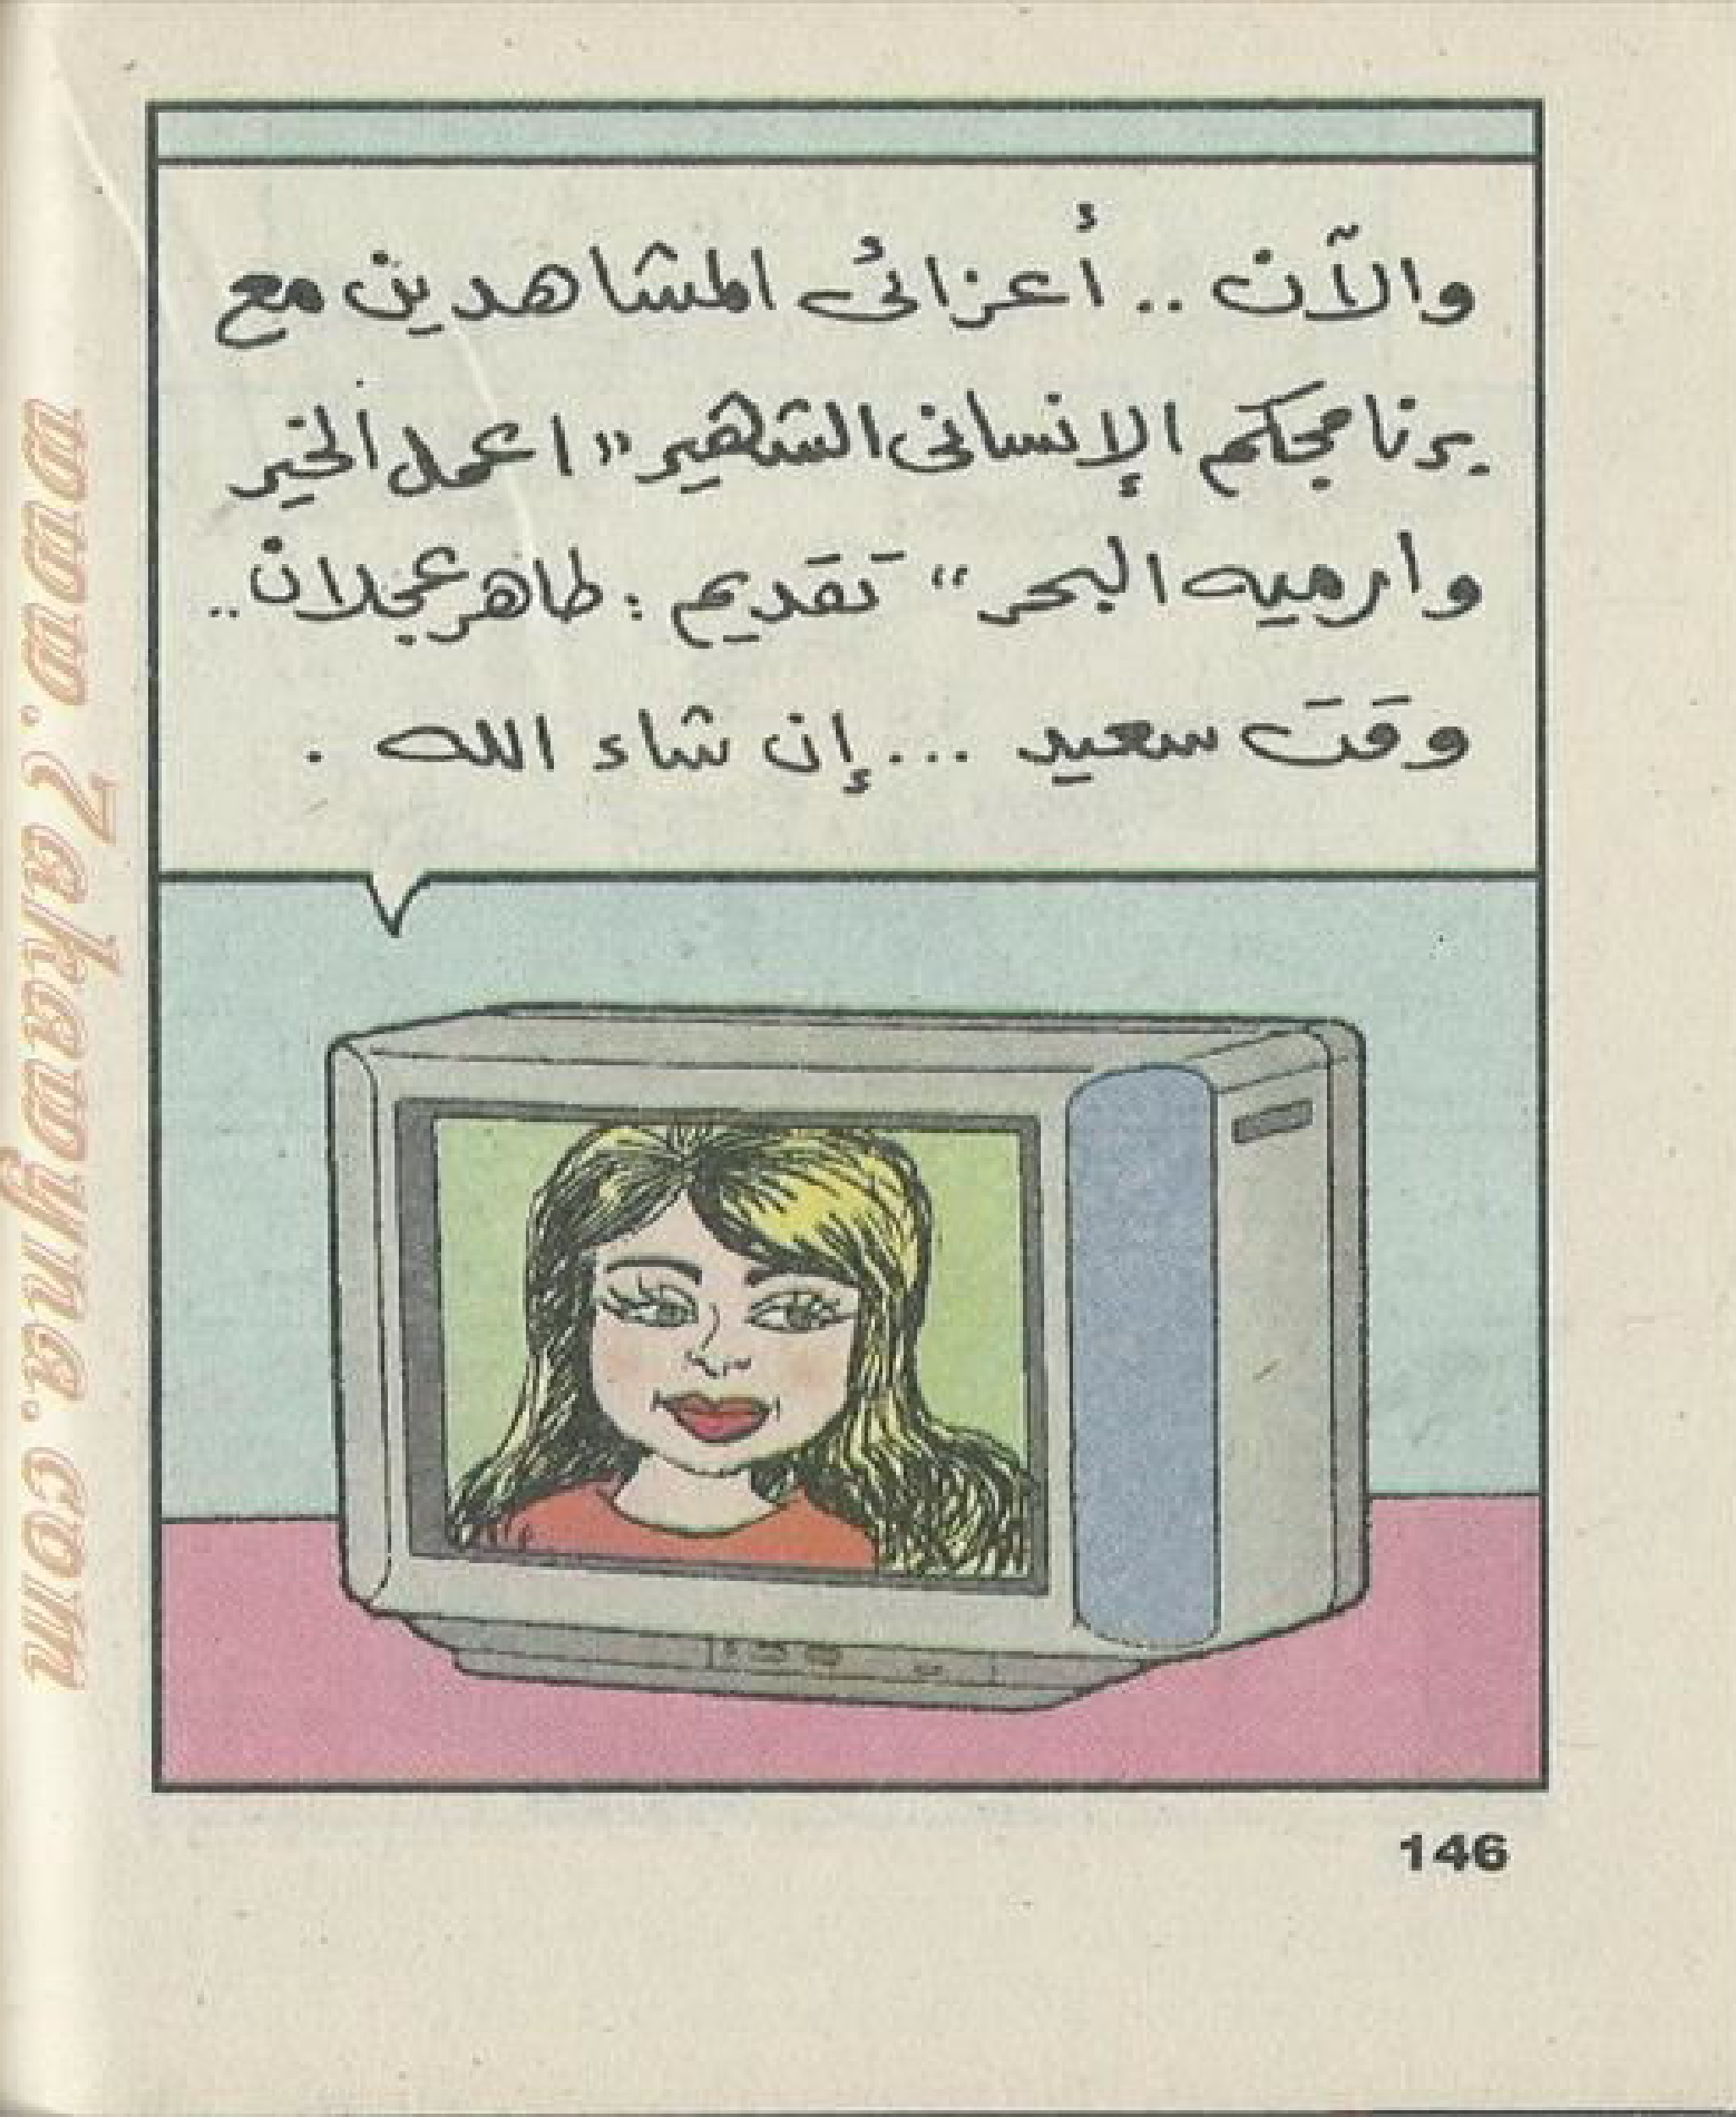 والآن .. أعزائى المشاهدين مع
برنامجكم الإنسانى الشهير « اعمل الخير
وارميه البحر “ تقديم : طاهر عجلان ..
وقت سعيد ... إن شاء الله .
146
www.Zakawyuna.com